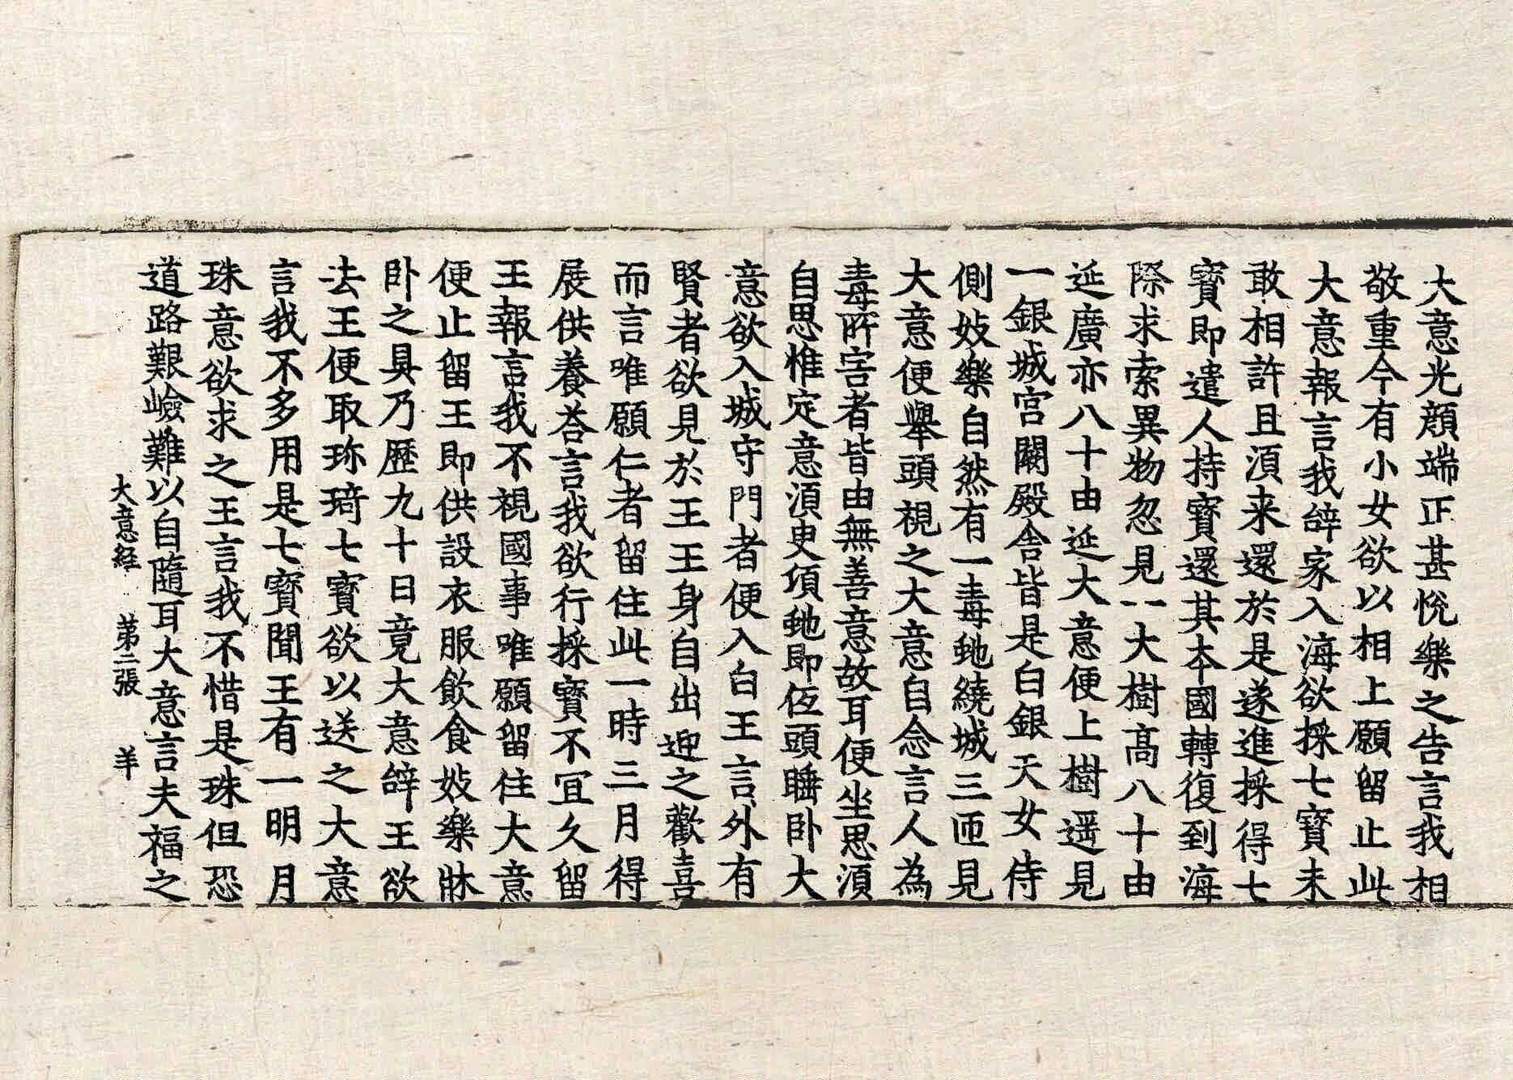 大意光顔端正甚悅樂之告言我相
敬重今有小女欲以相上願留止此
大意報言我辝家入海欲採七寳未
敢相許且湏来還於是遂進採得七
寳即遣人持寳還其夲國轉復到海
際求索異物忽見一大樹髙八十由
延廣亦八十由延大意便上樹遥見
一銀城宮闕殿舎皆是白銀天女侍
側妓樂自然有一毒虵繞城三匝見
大意便舉頭視之大意自念言人為
毒所害者皆由無善意故耳便坐思湏
自思惟定意湏臾頃虵即伍頭睡卧大
意欲入城守門者便入白王言外有
賢者欲見於王王身自出迎之歡喜
而言唯願仁者留住此一時三月得
展供養荅言我欲行採寳不冝久留
王報言我不視國事唯願留住大意
便止留王即供設衣服飲食妓樂牀
卧之具乃歷九十日竟大意辝王欲
去王便取珎琦七寳欲以送之大意
言我不多用是七寳聞王有一明月
珠意欲求之王言我不惜是珠但恐
道路艱嶮難以自隨耳大意言夫福之
大意経 第二張 羊